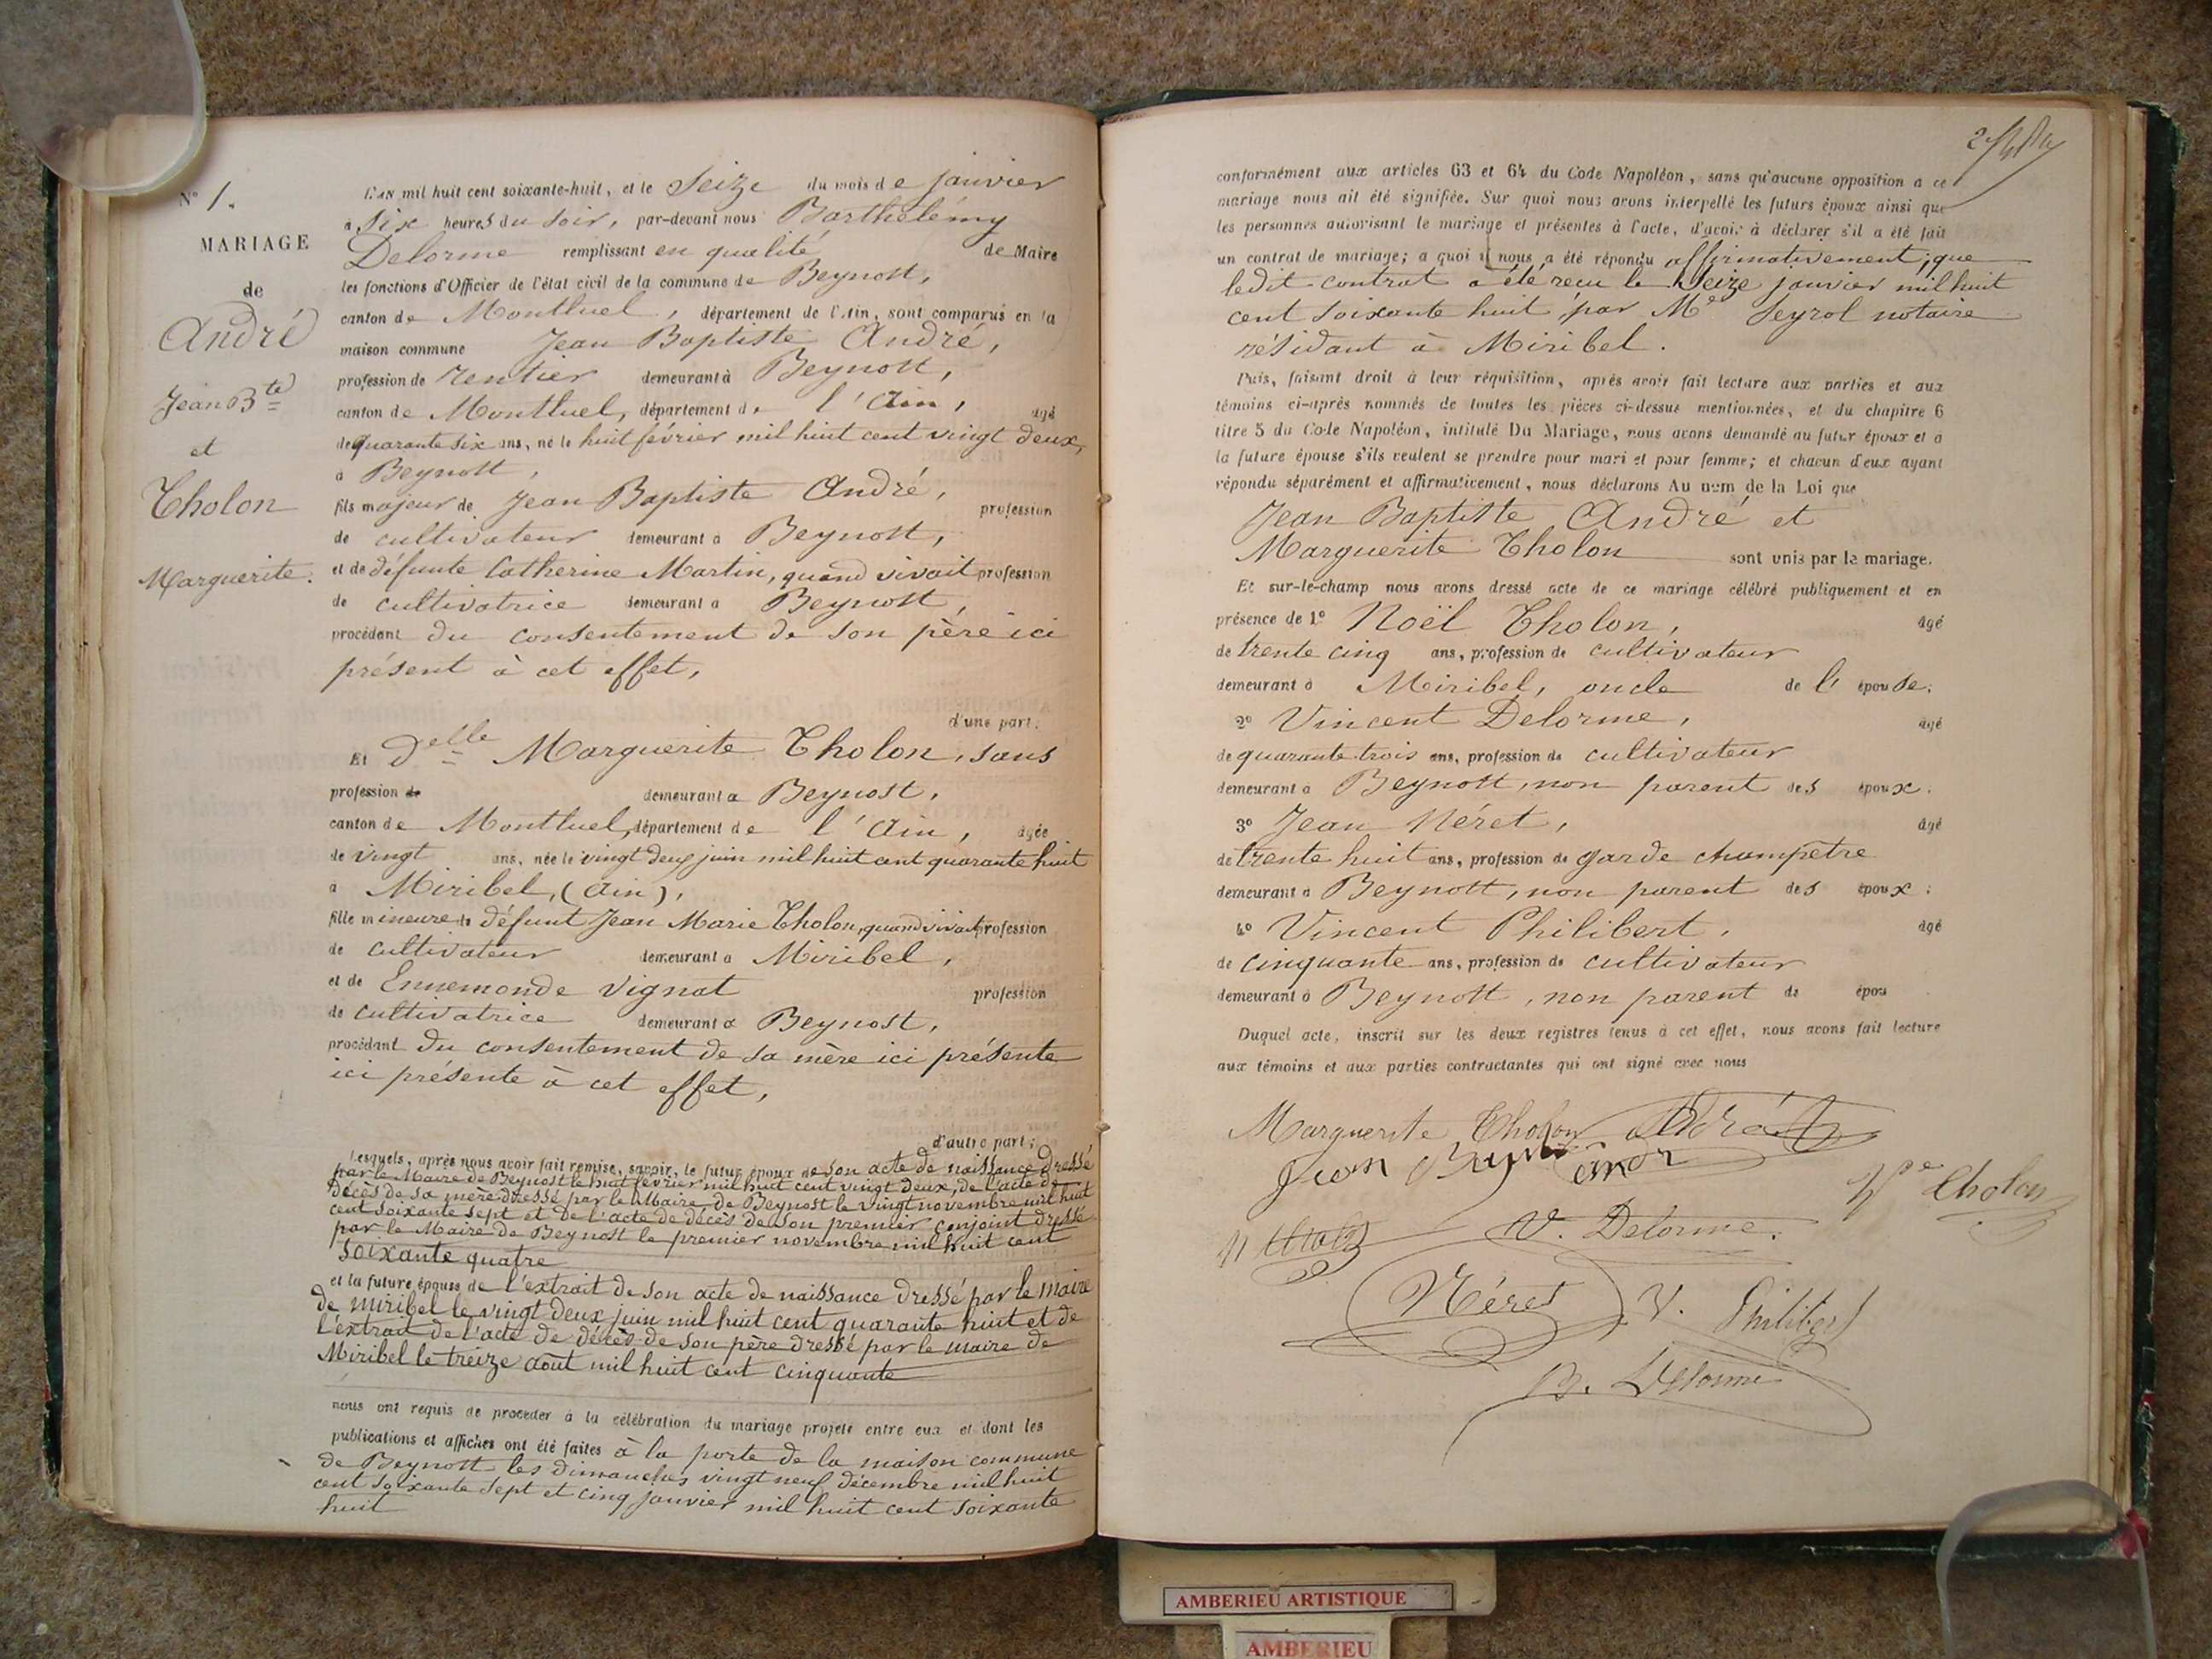 N° 1.
MARIAGE
de
André
Jean Bte
et
Tholon
Marguerite.
L'AN mil huit cent soixante-huit, et le Seize du mois de janvier
à Six heures du Soir, par-devant nous Barthélémy
Delorme remplissant en qualité de Maire
les fonctions d'Officier de l'état civil de la commune de Beynost,
canton de Montluel, département de l'Ain, sont comparus en la
maison commune Jean Baptiste André,
profession de rentier demeurant à Beynost,
canton de Montluel, département de l'Ain, agé
de quarante six ans, né le huit février mil huit cent vingt deux,
à Beynost,
fils majeur de Jean Baptiste André, profession
de cultivateur demeurant à Beynost,
et de défunte Catherine Martin, quand vivait profession
de cultivatrice demeurant à Beynost,
procédant du consentement de son père ici
présent à cet effet,
d'une part;
Et Delle Marguerite Tholon, sans
profession de demeurant à Beynost,
canton de Montluel, département de l'Ain, agée
de vingt ans, née le vingt deux juin mil huit cent quarante huit
à Miribel, (Ain),
fille mineure de défunt Jean Marie Tholon, quand vivait profession
de cultivateur demeurant à Miribel,
et de Ennemonde Vignat profession
de cultivatrice demeurant à Beynost,
procédant du consentement de sa mère ici présente
ici présente à cet effet,
d'autre part;
Lesquels, après nous avoir fait remise, savoir, le futur époux de son acte de naissance dressé
par le Maire de Beynost le huit février mil huit cent vingt deux, de l'acte de
décès de sa mère dressé par le Maire de Beynost le vingt novembre mil huit
cent soixante sept et de l'acte de décès de son premier conjoint dressé
par le Maire de Beynost le premier novembre mil huit cent
soixante quatre
et la future épouse de l'extrait de son acte de naissance dressé par le maire
de Miribel le vingt deux juin mil huit cent quarante huit et de
l'extrait de l'acte de décès de son père dressé par le maire de
Miribel le treize août mil huit cent cinquante
nous ont requis de procéder à la célébration du mariage projeté entre eux et dont les
publications et affiches ont été faites à la porte de la maison commune
de Beynost les dimanches vingt neuf décembre mil huit
cent soixante sept et cinq janvier mil huit cent soixante
huit
conformément aux articles 63 et 64 du Code Napoléon, sans qu'aucune opposition à ce
mariage nous ait été signifiée. Sur quoi nous avons interpellé les futurs époux ainsi que
les personnes autorisant le mariage et présentes à l'acte, d'avoir à déclarer s'il a été fait
un contrat de mariage; à quoi il nous a été répondu affirmativement; que
ledit contrat a été reçu le Seize janvier mil huit
cent soixante huit, par Me Seyrol notaire
résidant à Miribel.
Puis, faisant droit à leur réquisition, après avoir fait lecture aux parties et aux
témoins ci-après nommés de toutes les pièces ci-dessus mentionnées, et du chapitre 6
titre 5 du Code Napoléon, intitulé Du Mariage, nous avons demandé au futur époux et à
la future épouse s'ils veulent se prendre pour mari et pour femme; et chacun d'eux ayant
répondu séparément et affirmativement, nous déclarons Au nom de la Loi que
Jean Baptiste André et
Marguerite Tholon sont unis par le mariage.
Et sur-le-champ nous avons dressé acte de ce mariage célébré publiquement et en
présence de 1° Noël Tholon, âgé
de trente cinq ans, profession de cultivateur
demeurant à Miribel, oncle de l'épouse;
2° Vincent Delorme, âgé
de quarante trois ans, profession de cultivateur
demeurant à Beynost, non parent des époux;
3° Jean Néret, âgé
de trente huit ans, profession de garde champêtre
demeurant à Beynost, non parent des époux;
4° Vincent Philibert, âgé
de cinquante ans, profession de cultivateur
demeurant à Beynost, non parent de épou
Duquel acte, inscrit sur les deux registres tenus à cet effet, nous avons fait lecture
aux témoins et aux parties contractantes qui ont signé avec nous
Marguerite Tholon André
Tholon
V. Delorme.
Néret V. Philibert
B. Delorme
AMBERIEU ARTISTIQUE
AMBERIEU